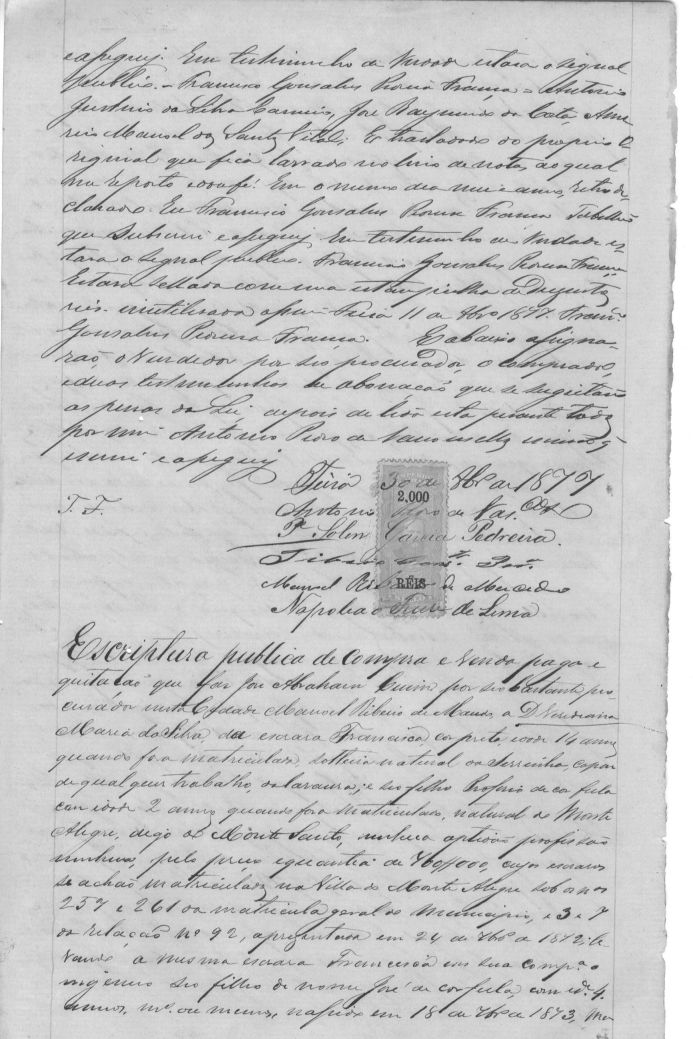 e assignei. Em testimunho da Verdade estava o signal
publico. - Francisco Gonsalves Pedreira França = Antonio
da Silva Carneiro, José Raymundo da Costa,
Manoel dos Santos Vital; E trasladado do proprio O
riginal que fica lavrado no livro de notas, ao qual
me reporto e dou fé. Em o mesmo dia mez e anno, retro de
clarado. Eu Francisco Gonsalves Pedreira França Tabellião
que Subscrevi e assignei. Em testimunho da Verdade es
tava o signal publico. Francisco Gonsalves Pedreira França
Estava sellada com uma estampilha de Duzentos
reis inutilizada assim Feira 11 de 1877. Franco
Gonsalves Pedreira França. E abaixo assigna
rão, o Vendedor por seo procurador, o comprador,
e duas testimunhas de abonação que se sugeitão
as penas da Lei depois de lido esta perante todos
por mim Antonio Pedro de Vasconcellos
escrevi e assignei
Feira 30 de 7bro de 1877
2,000
Antonio Pedro de Vas.cos
T. F.
P. Solon Garcia Pedreira.
Manoel Ribeiro de
RÉIS
Napoleão de Lima
Escriptura publica de Compra e Venda paga e
quitação que faz José Abraham por seo bastante pro
curador nesta Cidade Manoel Ribeiro de a D. Veridiana
Maria da Silva da escrava Francisca cor preta, idade 14 annos
quando foi matriculada, solteira natural da Serrinha, capaz
de qualquer trabalho, da lavoura; e seo filho de cor fula
com idade 2 annos, quando fora matriculado, natural de Monte
Alegre, digo de Monte Santo, nenhuma aptidão profissão
nenhuma, pelo preço e quantia de 760$000, cujos escravos
se achão matriculados na Villa de Monte Alegre sob os nos
257 e 261 da matricula geral do Municipio, e 3 e 7
da relação nº 92, aprezentada em 24 de 7bro de 1872; le
vando a mesma escrava Francisca em sua comp.a o
ingenuo seo filho de nome José de cor fula, com id.e 4
annos, m.s ou menos, nascido em 18 de 7bro de 1873,